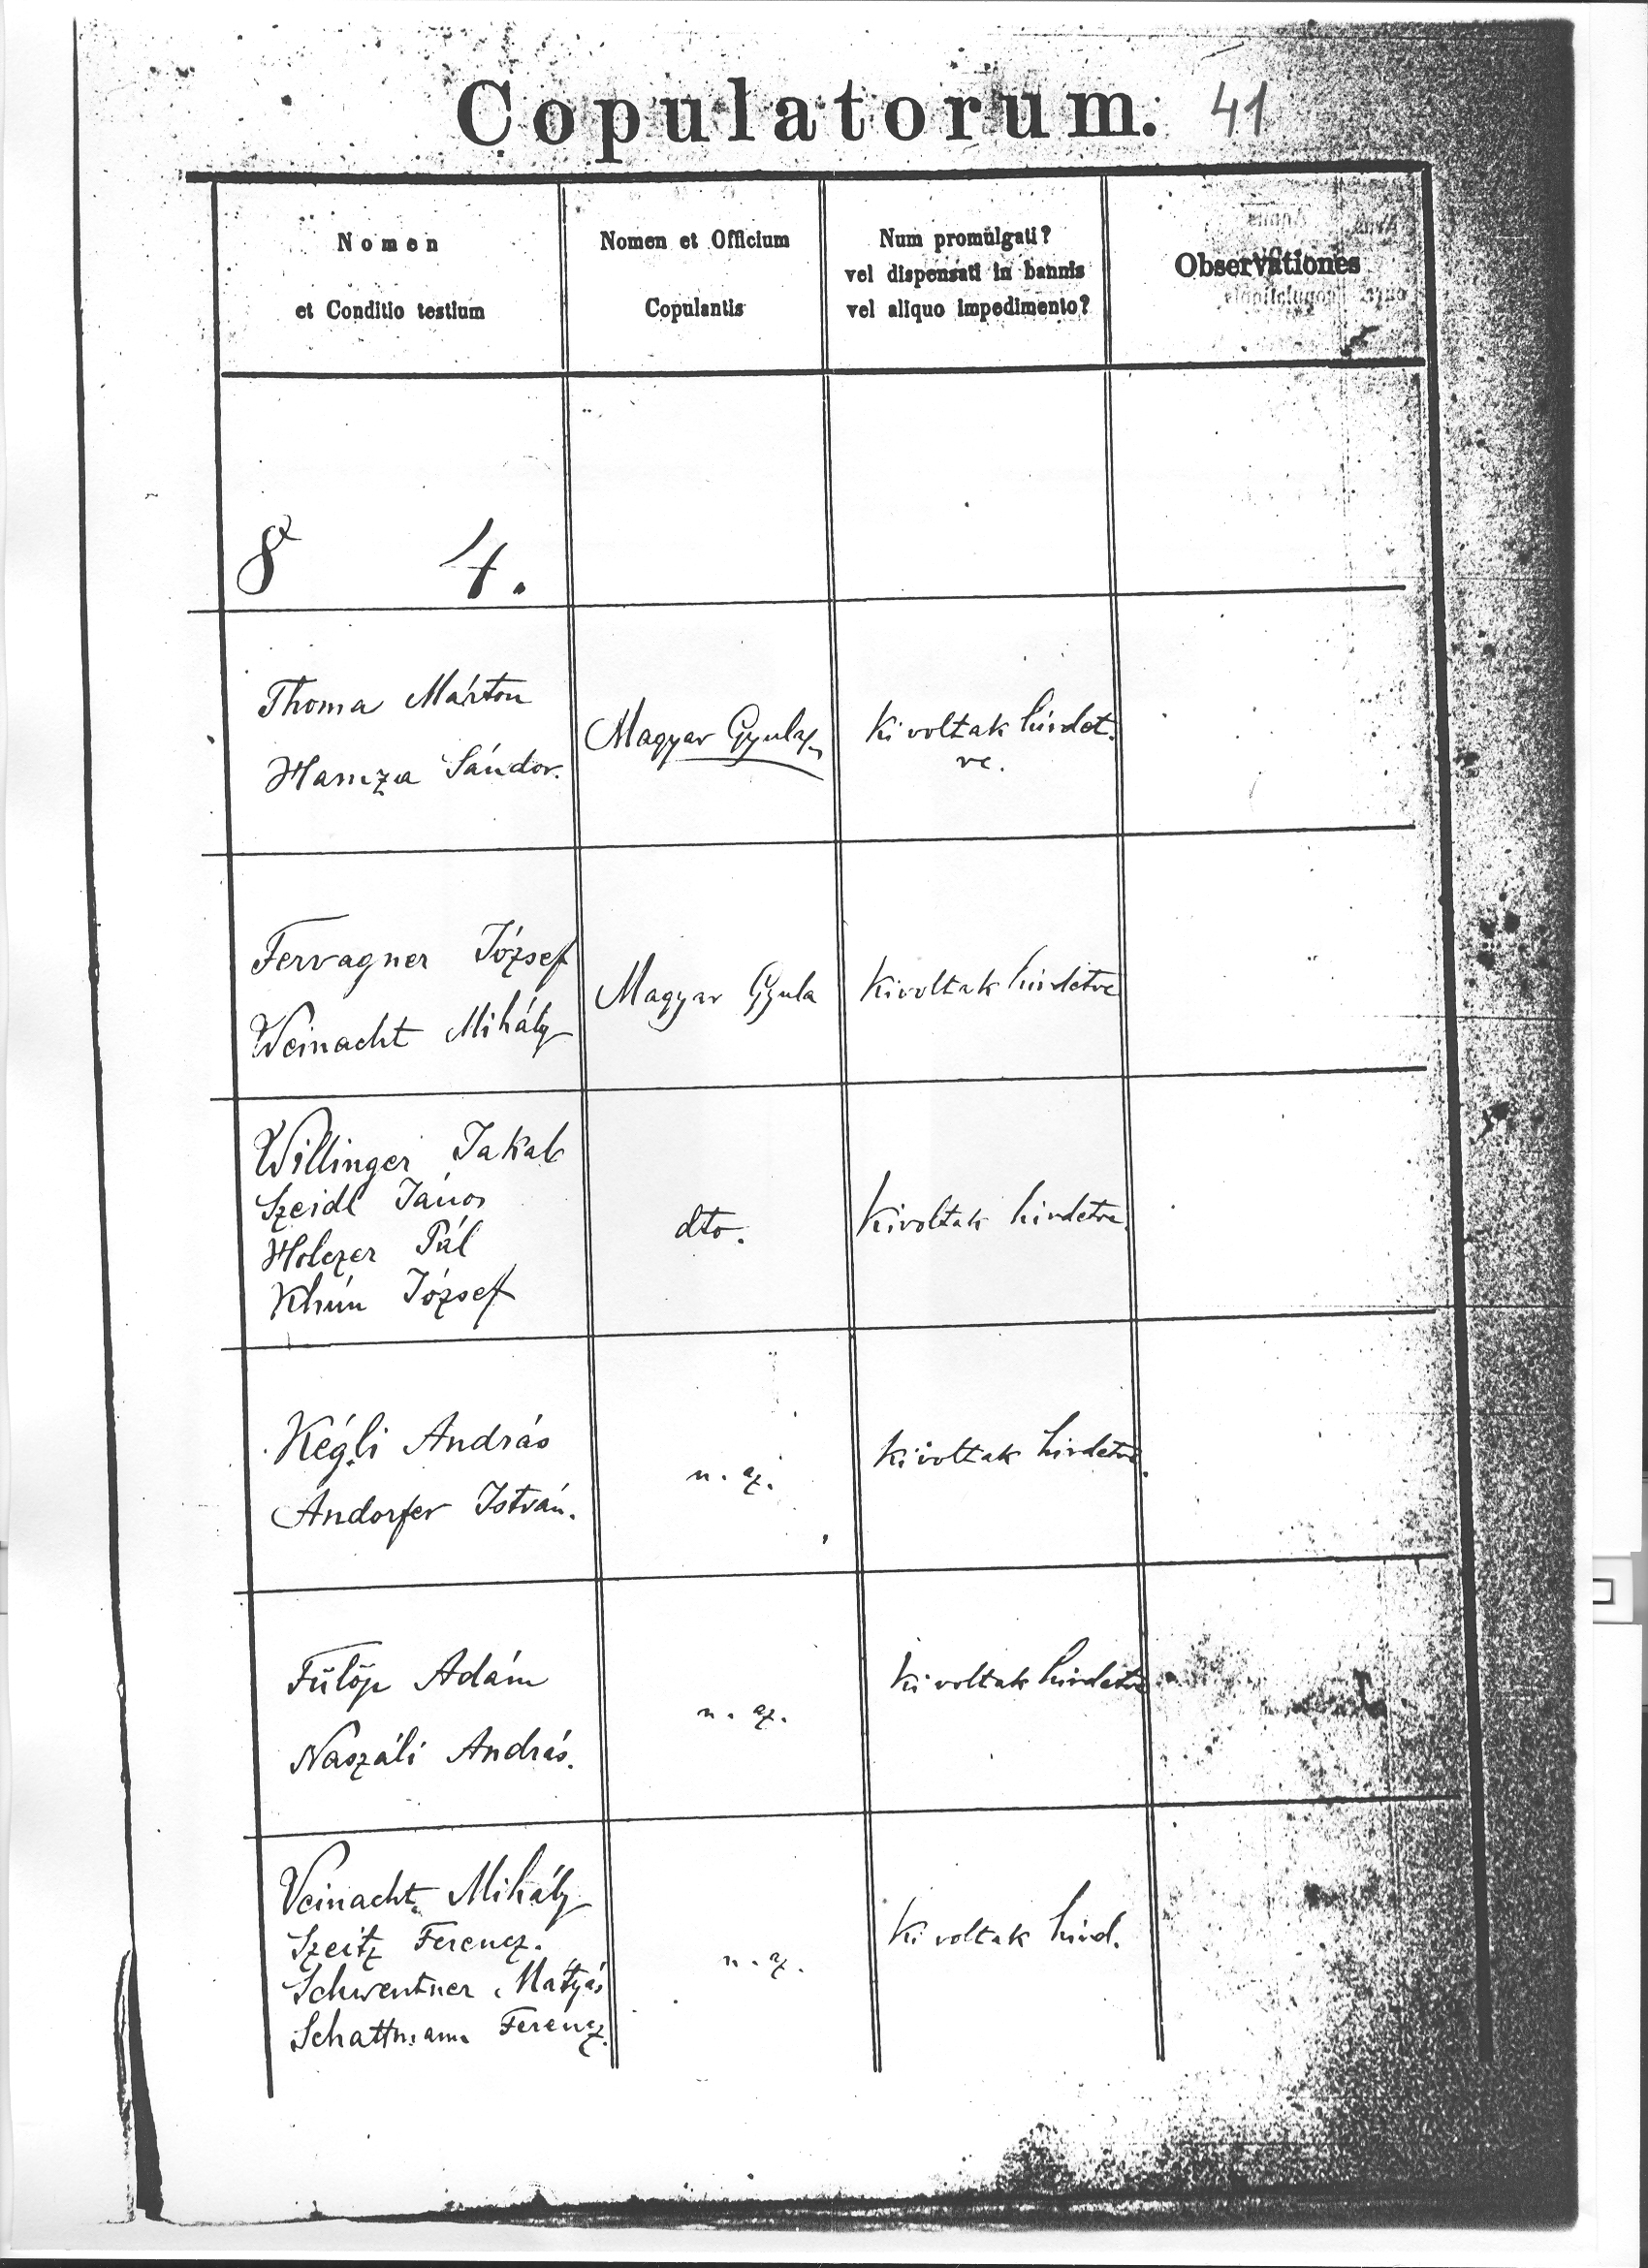 Copulatorum. 41
Nomen
et Conditio testium
Nomen et Officium
Copulantis
Num promulgati?
vel dispensati in bannis
vel aliquo impedimento?
Observationes
8 4.
Thoma Márton
Hamza Sándor.
Magyar Gyula
Ki voltak hirdet.
ve.
Fervagner József
Weinacht Mihály
Magyar Gyula
Kivoltak hirdetve
Willinger Jakab
Szeidl János
Holczer Pál
Khún József
dto.
Kivoltak hirdetve.
Kégli András
Andorfer István.
u. az.
Kivoltak hirdetve.
Fülöp Ádám
Naszáli András.
u. az.
Ki voltak hirdetve
Veinacht Mihály
Szeitz Ferencz.
Schwentner Mátyás
Schattmann Ferencz.
u. az.
Ki voltak hird.